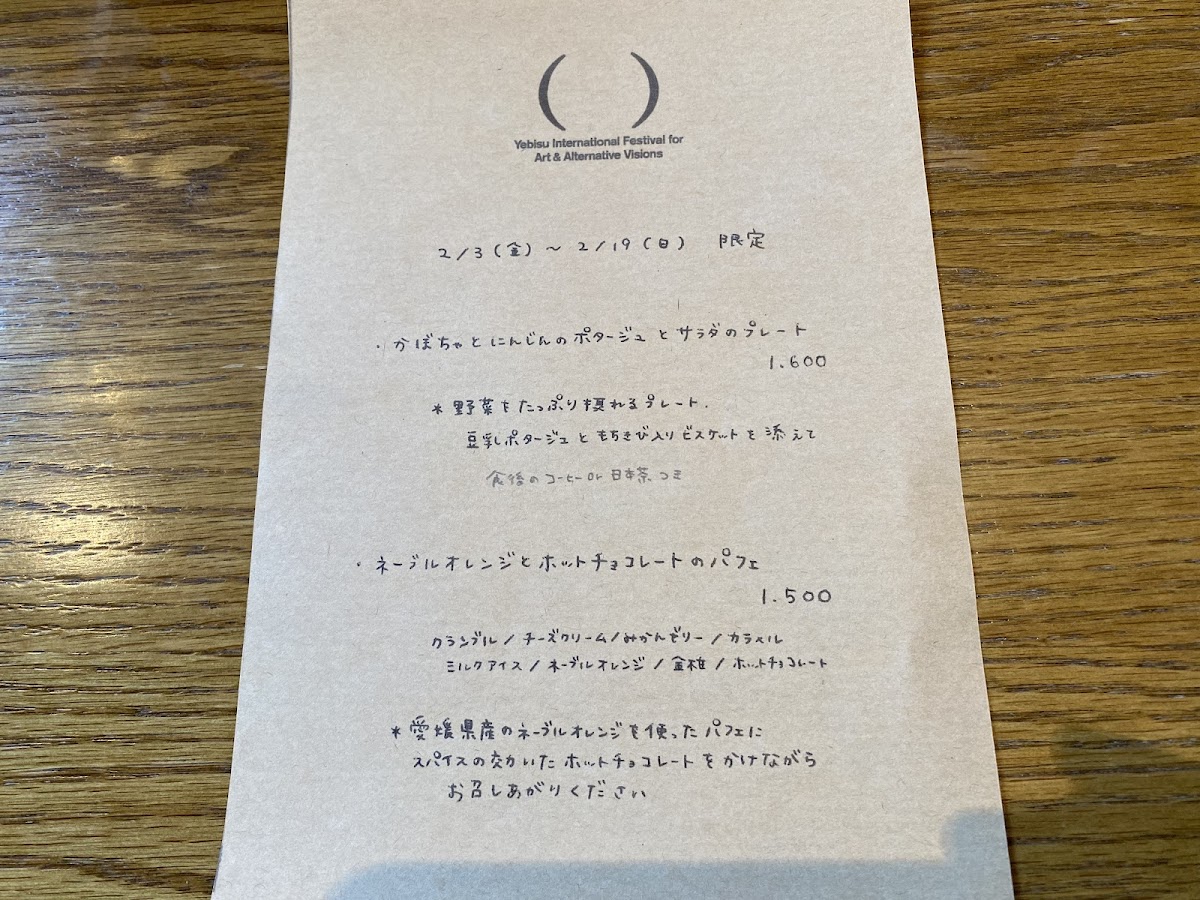 Yebisu International Festival for
Art & Alternative Visions
2/3(金)〜2/19(日) 限定
・かぼちゃとにんじんのポタージュとサラダのプレート
1.600
*野菜をたっぷり摂れるプレート.
豆乳ポタージュともちきび入りビスケットを添えて
食後のコーヒーor日本茶つき
・ネーブルオレンジとホットチョコレートのパフェ
1.500
クランブル/チーズクリーム/みかんゼリー/カラメル
ミルクアイス/ネーブルオレンジ/金柑/ホットチョコレート
*愛媛県産のネーブルオレンジを使ったパフェに
スパイスの効いたホットチョコレートをかけながら
お召しあがりください